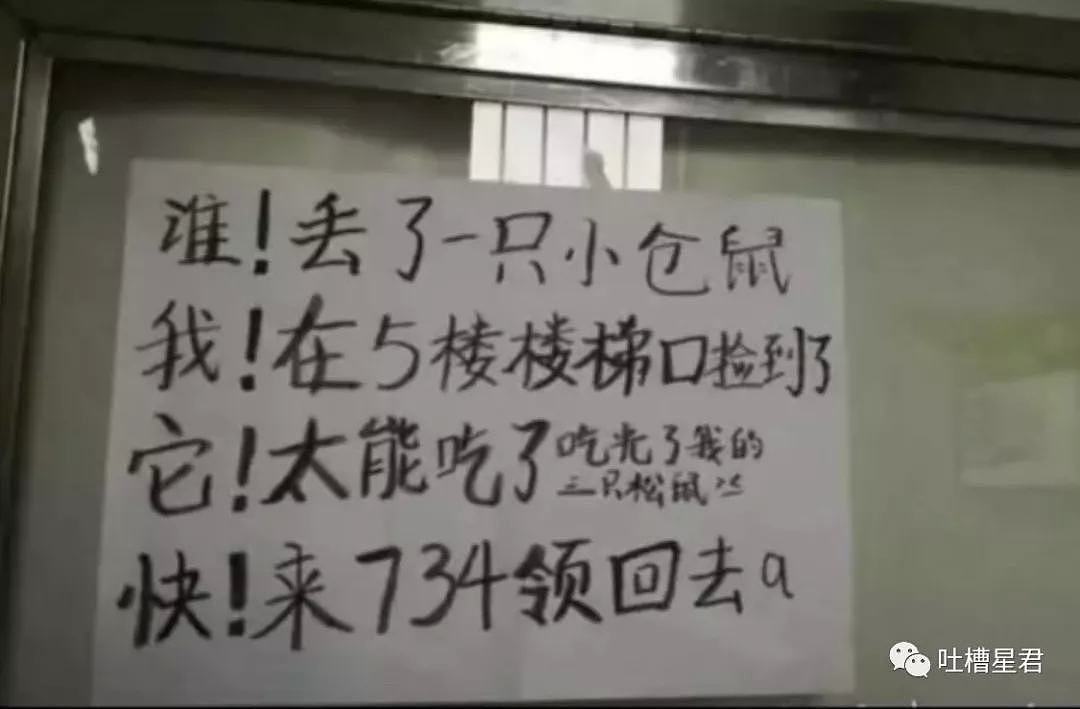 谁!丢了一只小仓鼠
我!在5楼楼梯口捡到了
它!太能吃了吃光了我的
三只松鼠
快!来734领回去a
吐槽星君